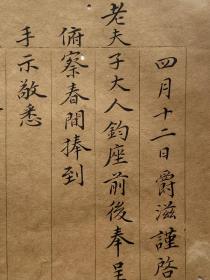 四月十二日爵滋謹啓
老夫子大人鈞座前後奉呈
俯察春間捧到
手示敬悉